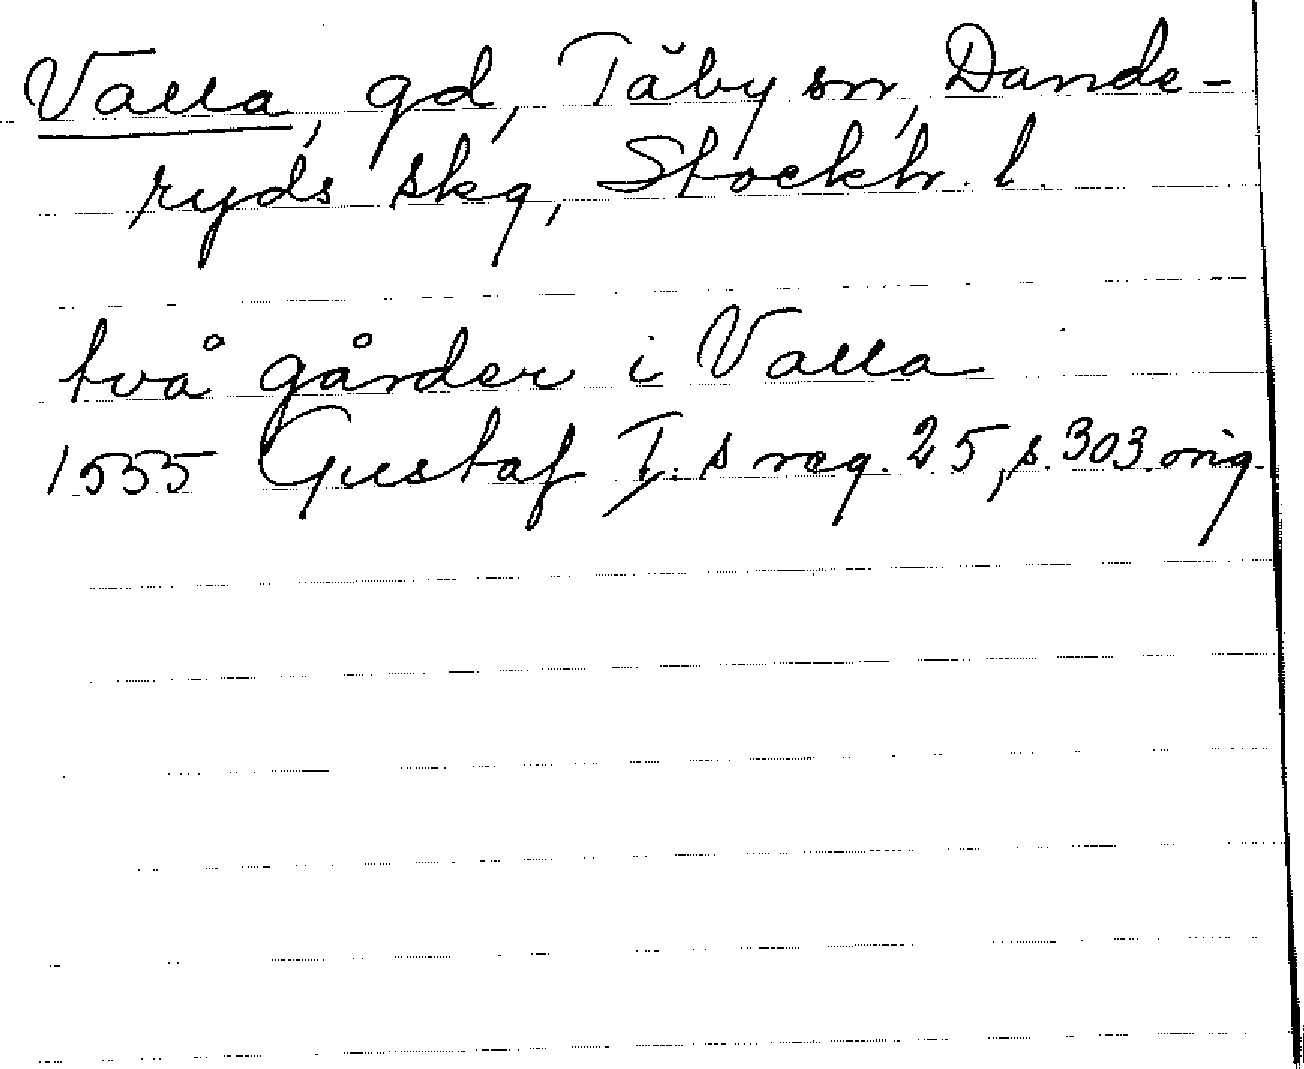 Valla, gd, Täby sn, Dande-
ryds skg, Stockh. l.
två gårder i Valla
1555 Gustaf I.s reg. 25, s. 303 orig.